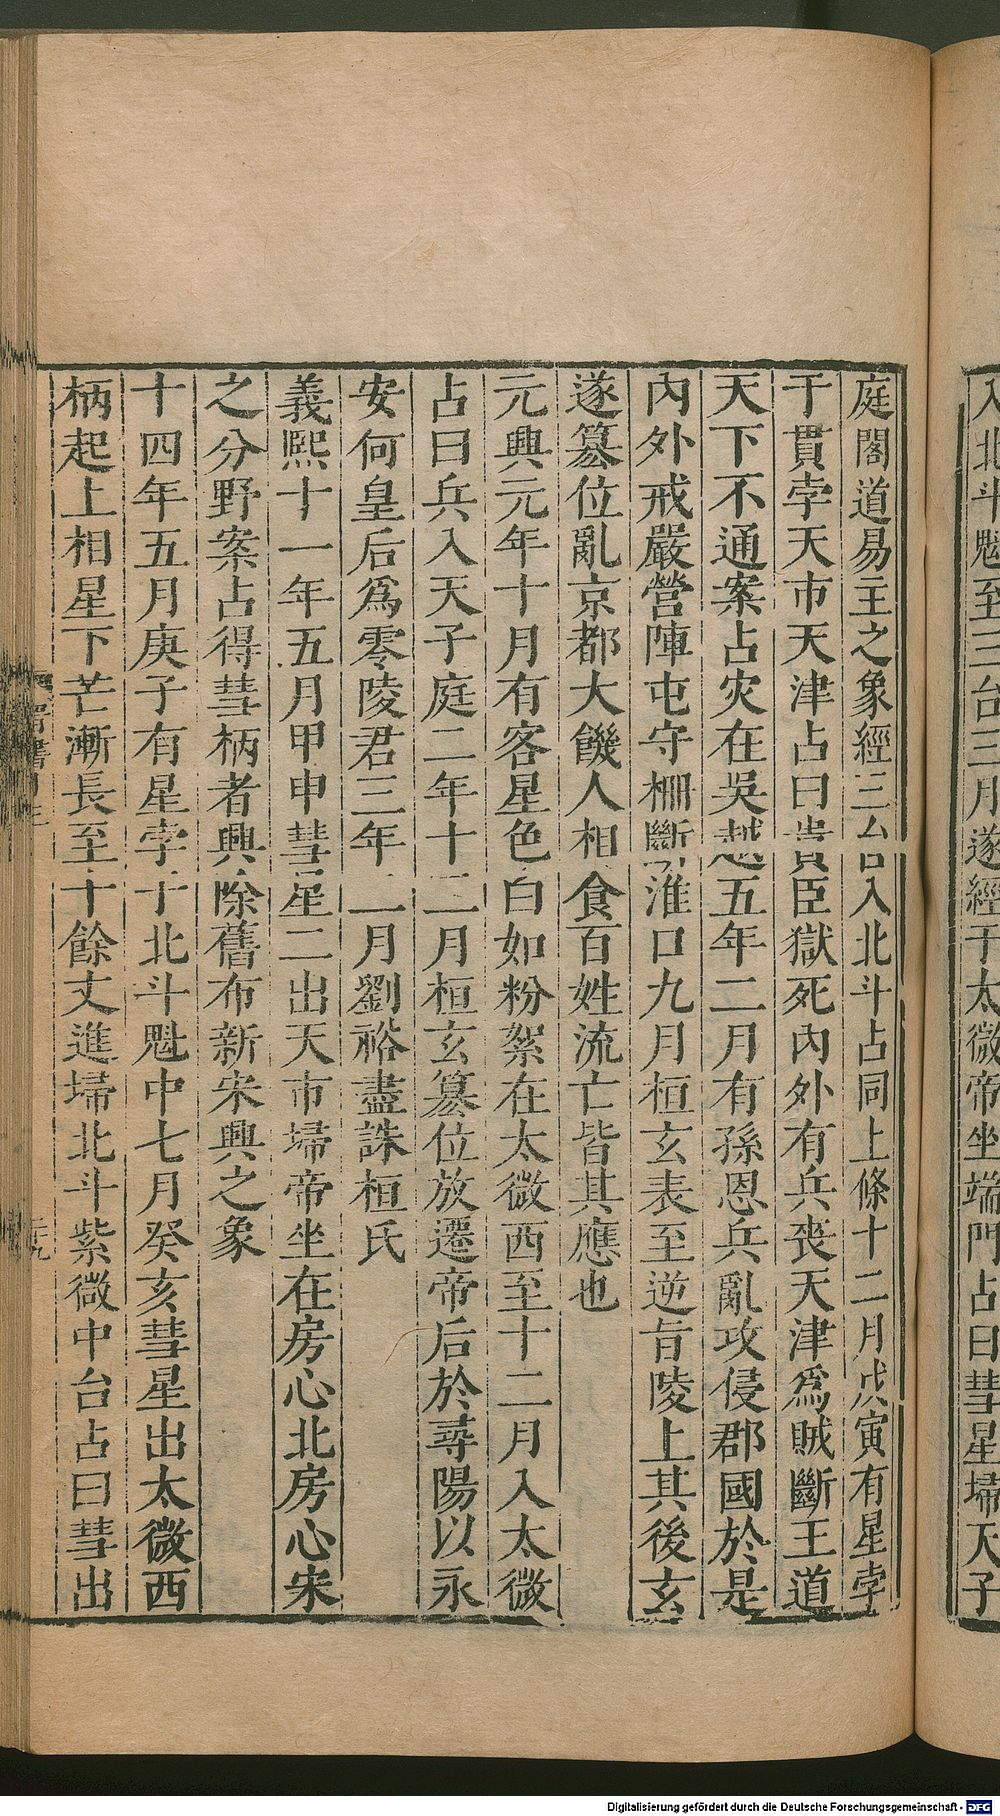 入北斗魁至三台三月遂經于太微帝坐端門占曰彗星埽天子
庭閣道易主之象經三台入北斗占同上條十二月戊寅有星孛
于貫孛天市天津占曰貴臣獄死內外有兵喪天津爲賊斷王道
天下不通案占灾在吳越五年二月有孫恩兵亂攻侵郡國於是
內外戒嚴營陣屯守柵斷淮口九月桓玄表至逆旨陵上其後玄
遂篡位亂京都大饑人相食百姓流亡皆其應也
元興元年十月有客星色白如粉絮在太微西至十二月入太微
占曰兵入天子庭二年十二月桓玄篡位放遷帝后於尋陽以永
安何皇后爲零陵君三年二月劉裕盡誅桓氏
義熙十一年五月甲申彗星二出天市埽帝坐在房心北房心宋
之分野案占得彗柄者興除舊布新宋興之象
十四年五月庚子有星孛于北斗魁中七月癸亥彗星出太微西
柄起上相星下芒漸長至十餘丈進埽北斗紫微中台占曰彗出
Digitalisierung gefördert durch die Deutsche Forschungsgemeinschaft - DFG